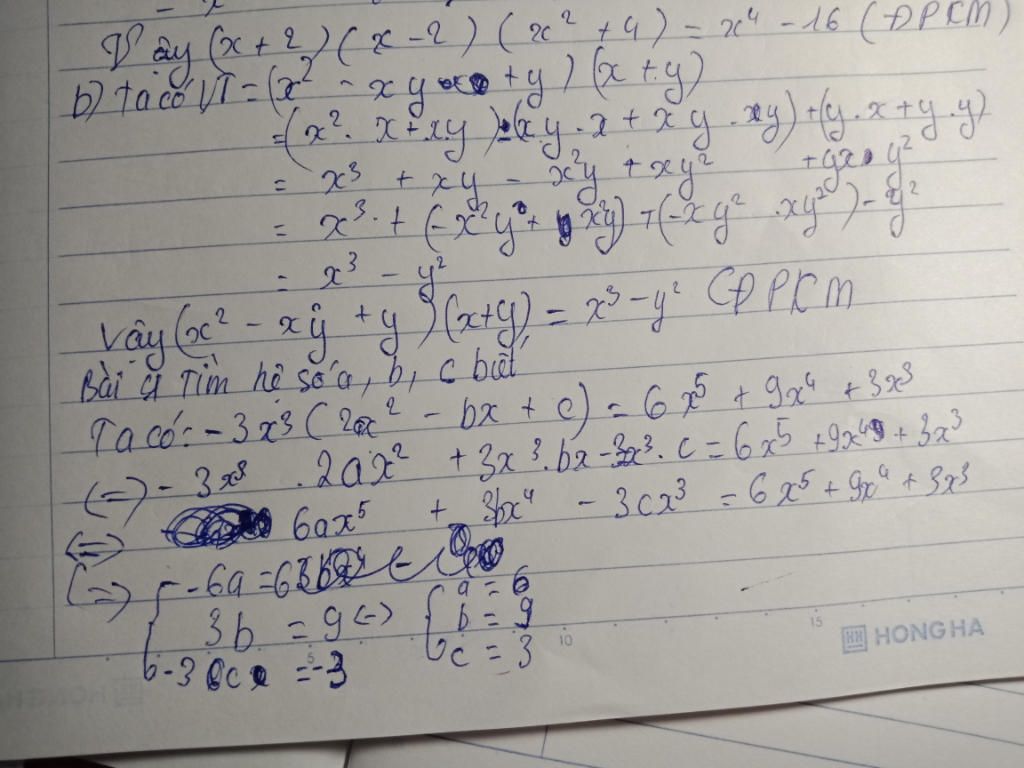 Vậy (x + 2) (x - 2) (x² + 4) = x⁴ - 16 (ĐPCM)
b) ta có VT = (x² - xy + y) (x + y)
= (x². x + xy) - (xy. x + xy. xy) + (y. x + y. y)
= x³ + xy - x²y + xy² + yx. y²
= x³. + (-x²y + x²y) + (-xy² . xy²) - y²
= x³ - y²
Vậy (x² - xy + y) (x+y) = x³ - y² (ĐPCM
Bài 4 Tìm hệ số a, b, c biết
Ta có: - 3x³ (2ax² - bx + c) = 6x⁵ + 9x⁴ + 3x³
(=) - 3x³ . 2ax² + 3x³. bx - 3x³. c = 6x⁵ + 9x⁴ + 3x³
(=) 6ax⁵ + 3bx⁴ - 3cx³ = 6x⁵ + 9x⁴ + 3x³
(=) { - 6a = 6 { a = 6
3b = 9 (=) b = 9
-3 c = -3 c = 3
5 10 15
HH HONG HA
HONG HA